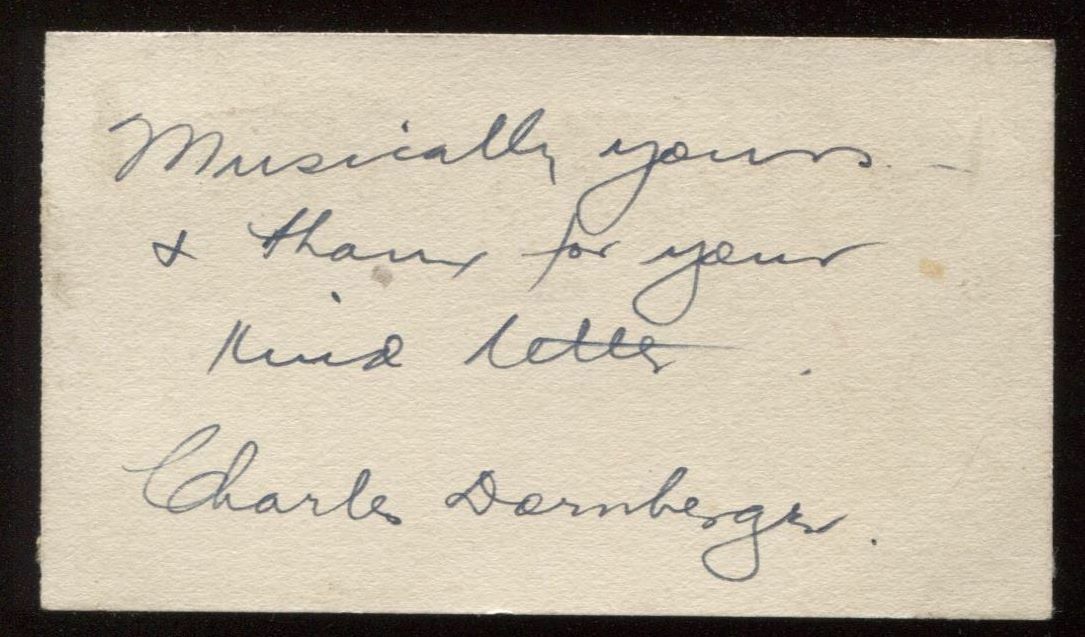 Musically yours -
& thanx for your
kind letter .
Charles Dornberger.